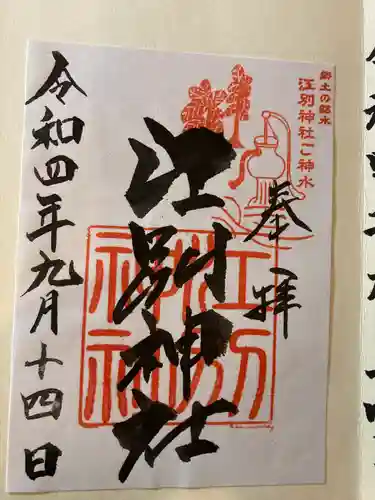 郷土の銘水
江別神社ご神水
奉拝
江別神社
江別神社
令和四年九月十四日